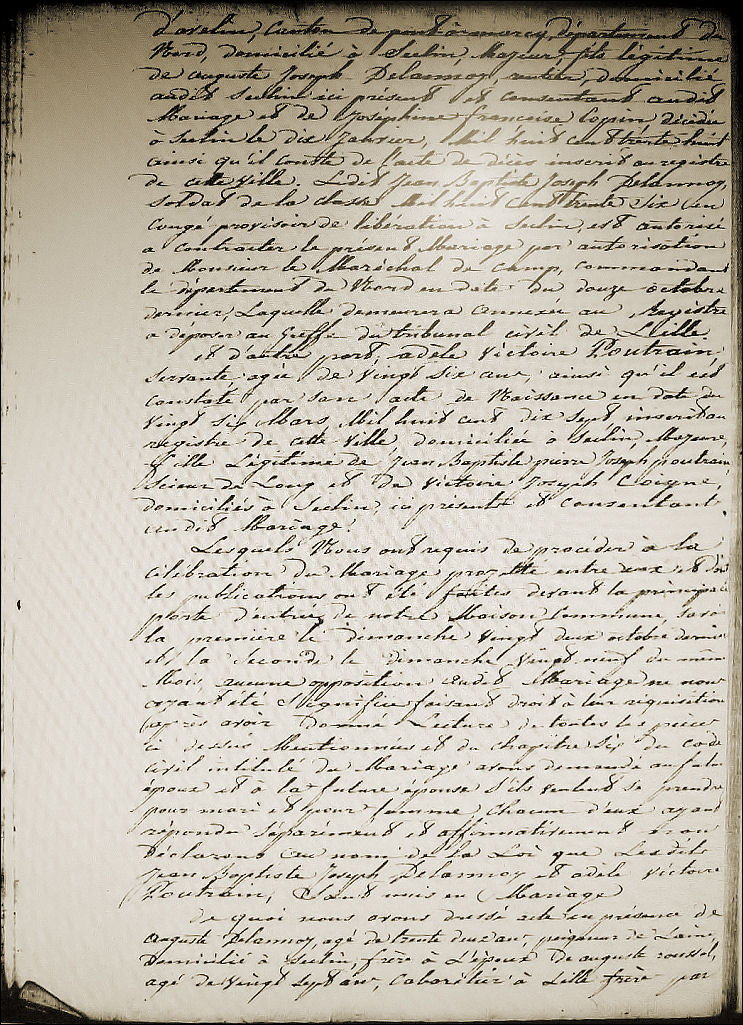 d'avelin, Canton de pont à marcq, département du
Nord, domicilié à Seclin, Majeur, fils légitime
de auguste Joseph Delannoy, rentier, domicilié
audit Seclin ici présent et consentant audit
Mariage et de Joséphine françoise Copin décédée
à Seclin le dix Janvier, Mil huit cent trente huit
ainsi qu'il conste de l'acte de décès inscrit au registre
de cette Ville. Ledit Jean Baptiste Joseph Delannoy,
Soldat de la classe Mil huit cent trente Six en
Congé provisoire de libération à Seclin, est autorisé
a contracter le présent Mariage par autorisation
de Monsieur le Maréchal de Camp, commandant
le département du Nord en date du douze octobre
dernier, Laquelle demeurera annexée au Registre
a déposer au Greffe du tribunal civil de Lille.
et d'autre part, adèle Victoire Poutrain,
Servante agée de Vingt Six ans, ainsi qu'il est
constaté par son acte de Naissance en date du
Vingt Six Mars Mil huit cent dix Sept inscrit au
registre de cette Ville domiciliée à Seclin, Majeure,
fille Légitime de Jean Baptiste pierre Joseph poutrain,
Scieur de Long et de Victoire Joseph
domiciliés à Seclin, ici présents et Consentant
audit Mariage.
Lesquels Nous ont requis de procéder à la
célébration du Mariage projetté entre eux et dont
les publications ont été faites devant la principale
porte d'entrée de notre Maison Commune, Savoir
la première le dimanche Vingt deux octobre dernier
et la Seconde le dimanche Vingt neuf du même
Mois, aucune opposition audit Mariage ne nous
ayant été Signifiée faisant droit à leur requisition
après avoir donné Lecture de toutes les pièces
ci dessus Mentionnées et du chapitre Six du code
civil intitulé du Mariage avons demandé au futur
époux et à la future épouse S'ils veulent se prendre
pour mari et pour femme, chacun d'eux ayant
répondu Séparément et affirmativement
Déclarons au nom de la Loi que Lesdits
Jean Baptiste Joseph Delannoy et adèle Victoire
Poutrain, Sont unis en Mariage
de quoi nous avons dressé acte en présence de
auguste Delannoy, agé de trente deux ans, peigneur de Laine,
Domicilié à Seclin, frère à L'époux de auguste roussel,
agé de Vingt Sept ans, Cabaretier à Lille frère par